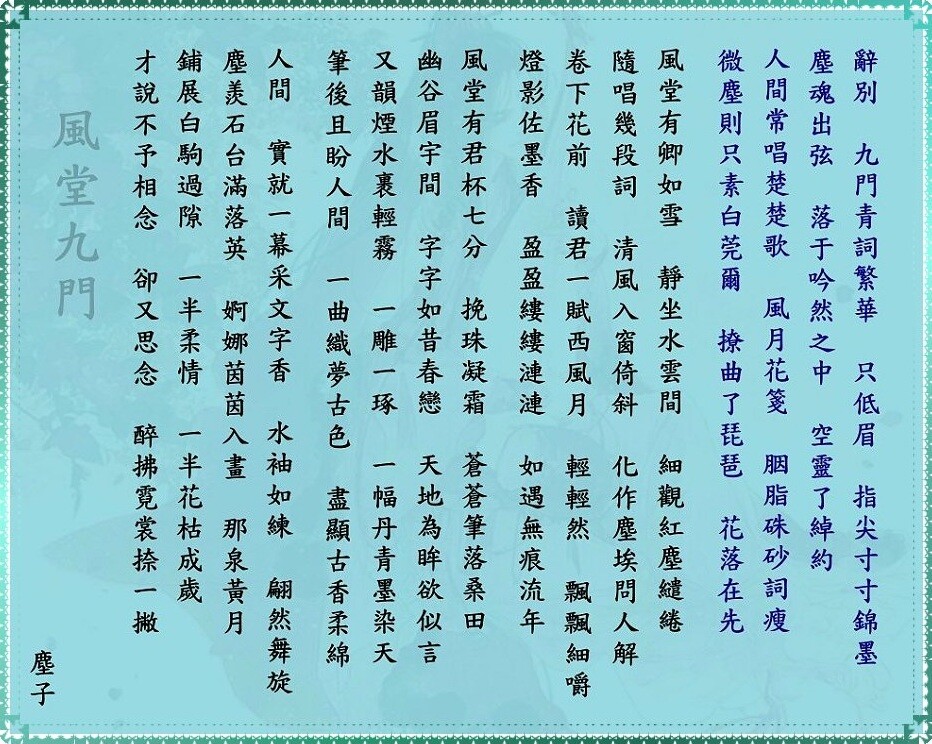 辭別　九門青詞繁華　只低眉　指尖寸寸錦墨
塵魂出弦　落于吟然之中　空靈了綽約
人間常唱楚楚歌　風月花箋　胭脂硃砂詞瘦
微塵則只素白莞爾　撩曲了琵琶　花落在先
風堂有卿如雪　靜坐水雲間　細觀紅塵繾綣
隨唱幾段詞　清風入窗倚斜　化作塵埃問人解
卷下花前　讀君一賦西風月　輕輕然　飄飄細嚼
燈影佐墨香　盈盈縷縷漣漣　如遇無痕流年
風堂有君杯七分　挽珠凝霜　蒼蒼筆落桑田
幽谷眉宇間　字字如昔春戀　天地為眸欲似言
又韻煙水裹輕霧　一雕一琢　一幅丹青墨染天
筆後且盼人間　一曲織夢古色　盡顯古香柔綿
人間　實就一幕采文字香　水袖如練　翩然舞旋
塵羨石台滿落英　婀娜茵茵入畫　那泉黃月
鋪展白駒過隙　一半柔情　一半花枯成歲
才說不予相念　卻又思念　醉拂霓裳捺一撇
風堂九門
塵子